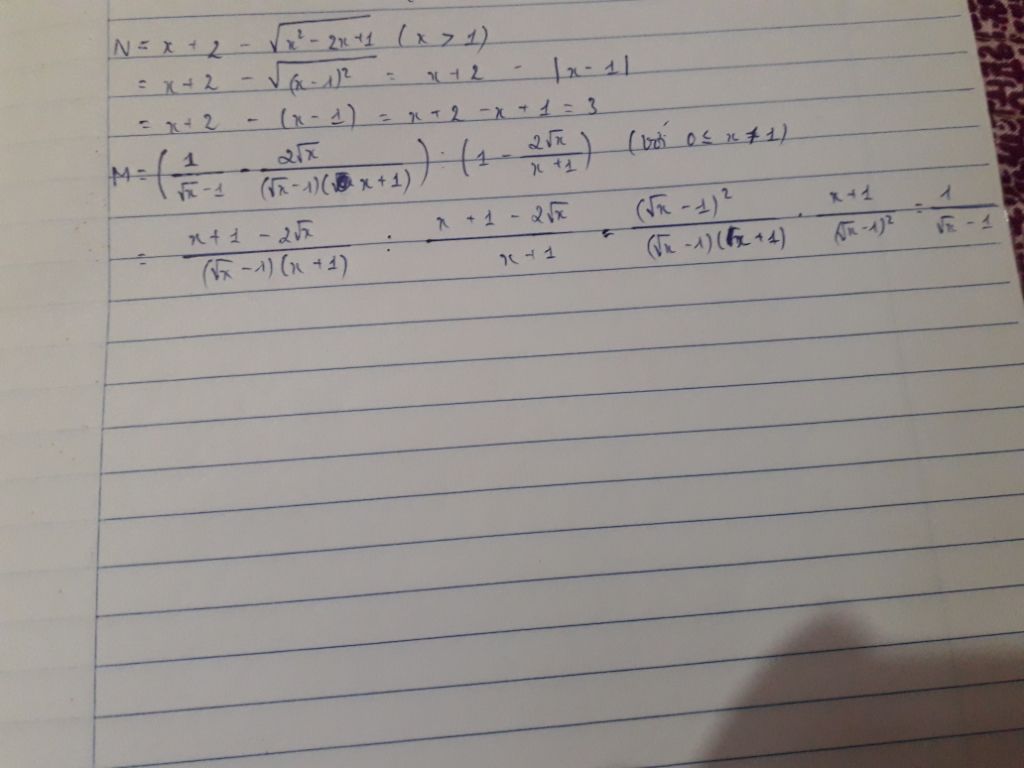 N = x + 2 - √(x² - 2x + 1) (x > 1)
= x + 2 - √((x - 1)²) = x + 2 - |x - 1|
= x + 2 - (x - 1) = x + 2 - x + 1 = 3
M = (1/(√x - 1) - 2√x/((√x - 1)(x + 1))) : (1 - 2√x/(x + 1)) (với 0 ≤ x ≠ 1)
= (x + 1 - 2√x)/((√x - 1)(x + 1)) : (x + 1 - 2√x)/(x + 1) = (√x - 1)²/((√x - 1)(x + 1)) . (x + 1)/(√x - 1)² = 1/(√x - 1)